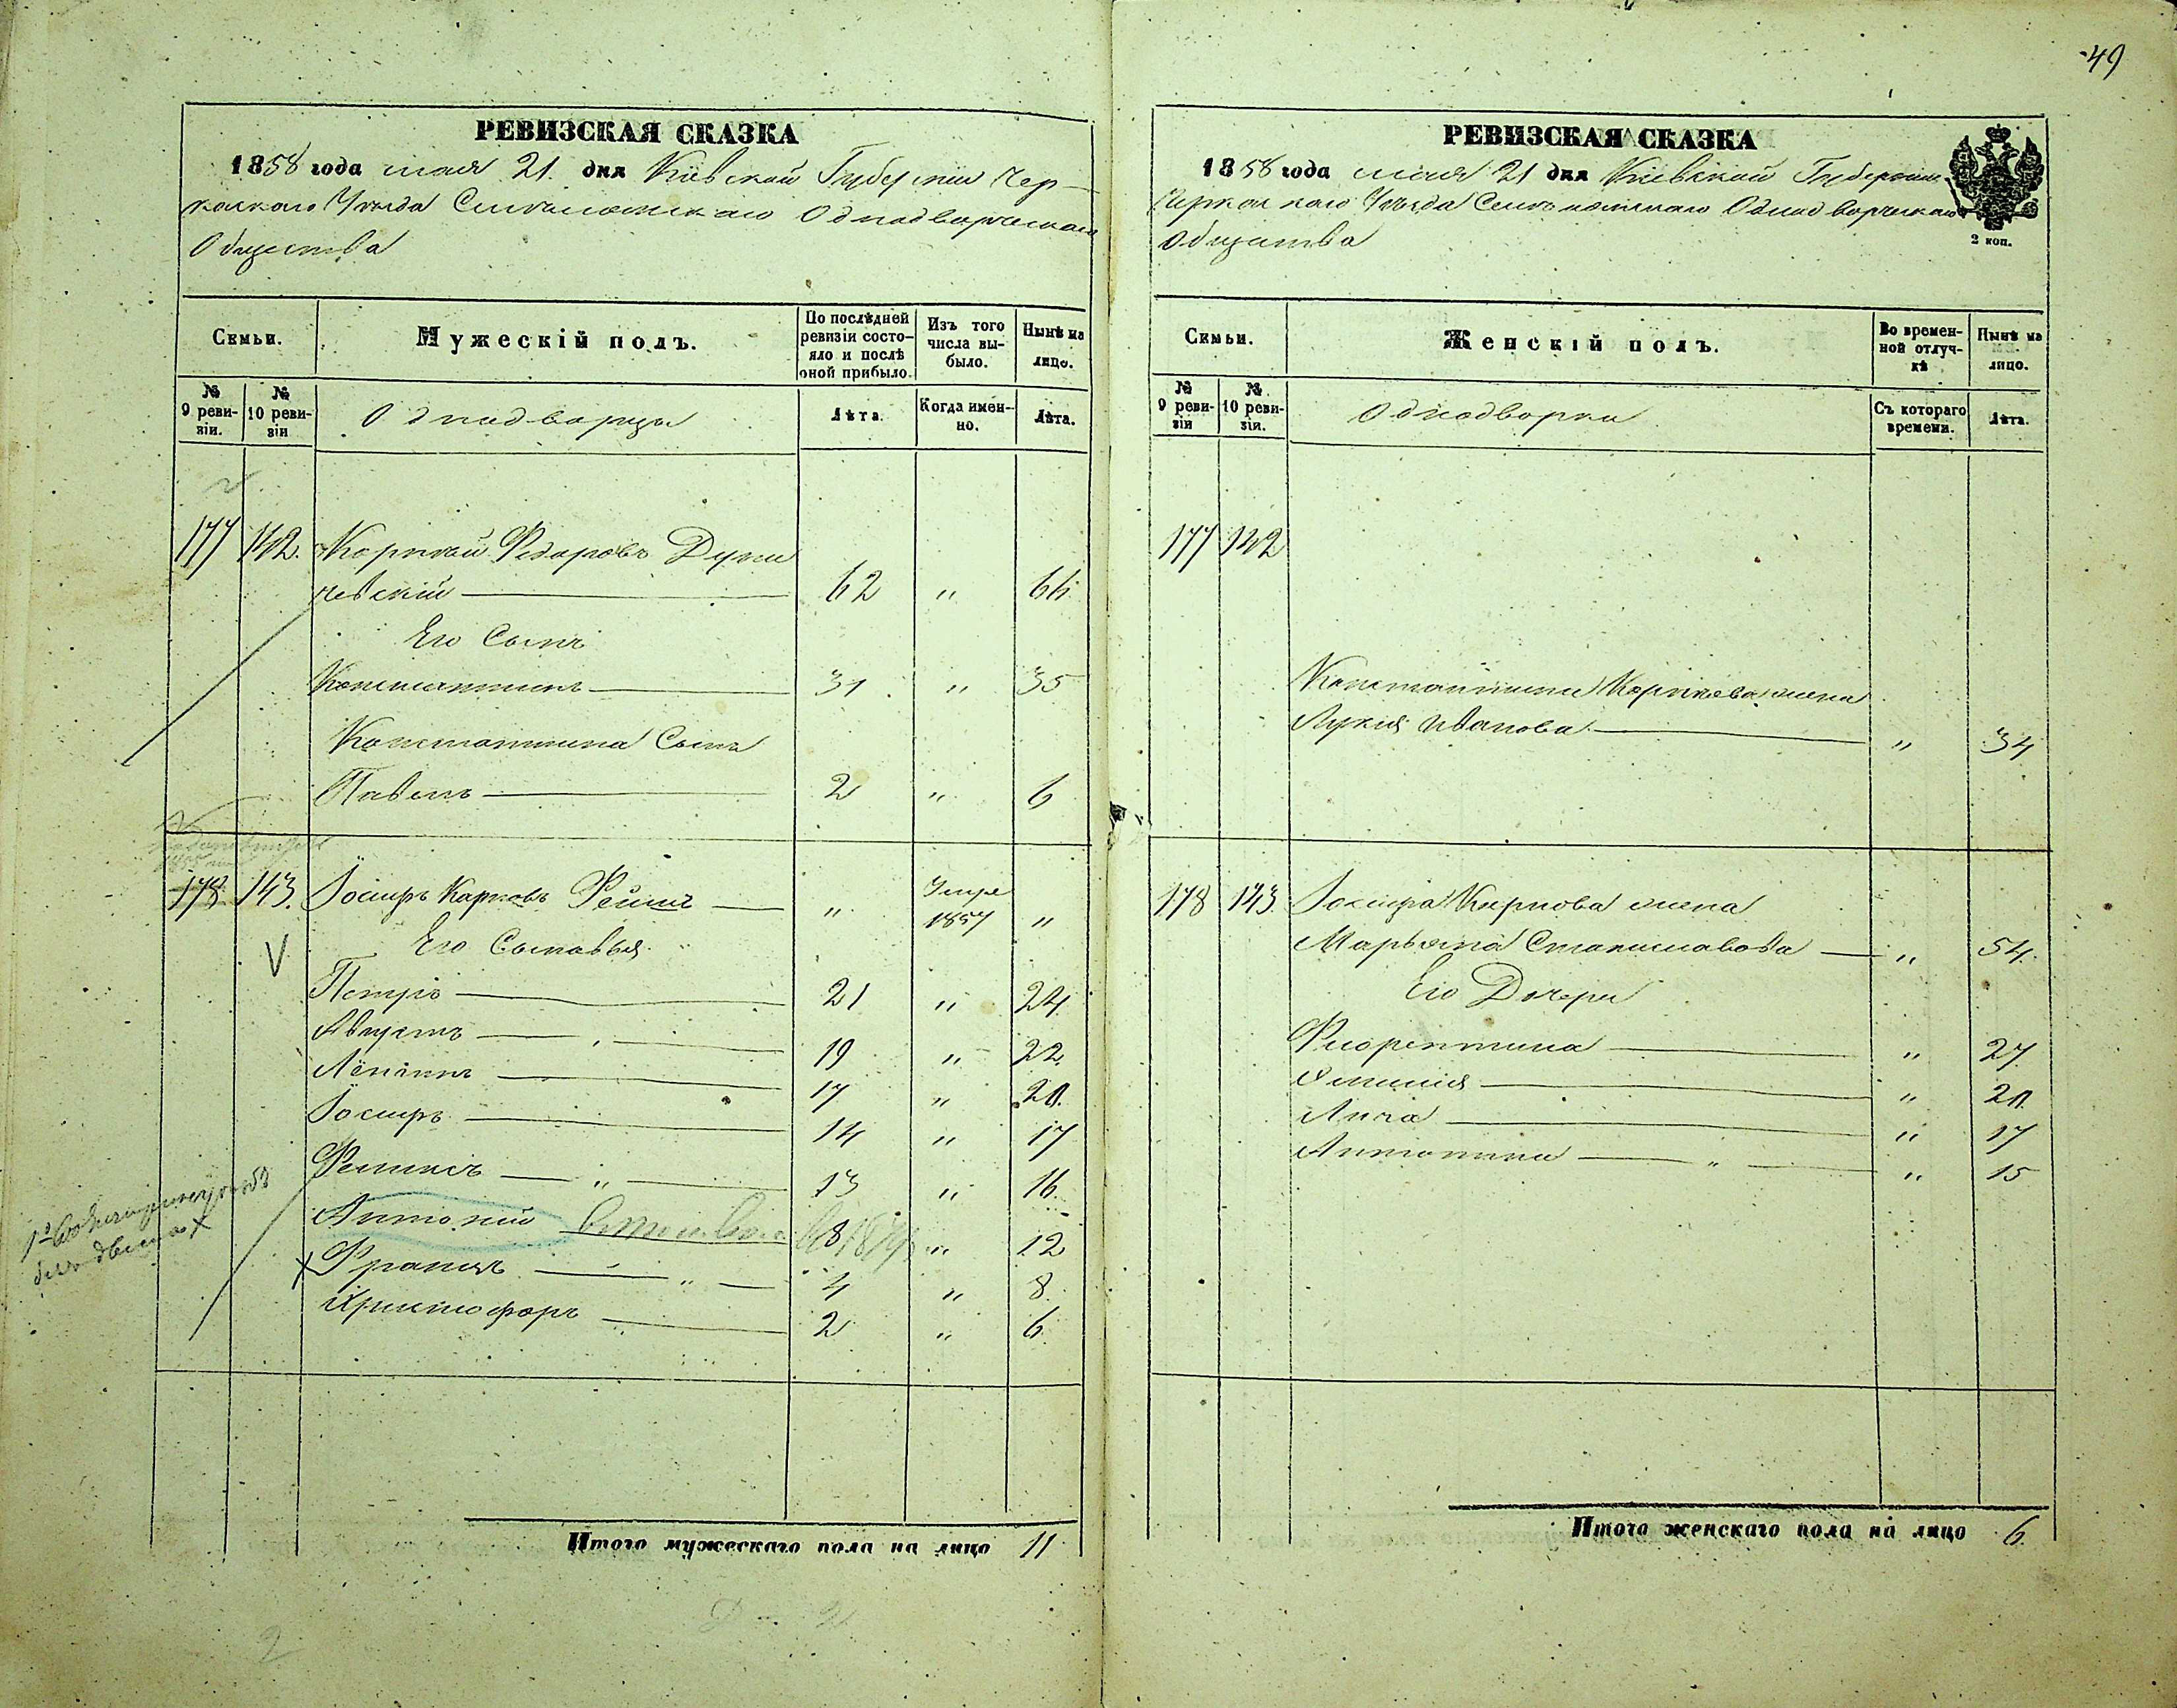 49
РЕВИЗСКАЯ СКАЗКА
1858 года мая 21 дня Кіевской Губерніи Чер-
каскаго Уезда Однодворческаго
Общества
Семьи.
Мужескій полъ.
По послѣдней ревизіи состояло и послѣ оной прибыло.
Изъ того числа выбыло.
Нынѣ на лицо.
№ 9 ревизіи.
№ 10 ревизіи
Однодворцы
Лѣта.
Когда именно.
Лѣта.
177 142. Корнѣй Федоровъ
62 " 66
Его Сынъ
Константинъ 31 " 35
Константина Сынъ
Павелъ 2 " 6
178 143. Іосифъ Карповъ " 1857 "
Его Сыновья
Петръ 21 " 24
Августъ 19 " 22
17 " 20.
Іосифъ 14 " 17
Феликсъ 13 " 16
Антоній 8 " 12
Францъ 4 " 8
Христофоръ 2 " 6
Итого мужескаго пола на лицо 11
РЕВИЗСКАЯ СКАЗКА
1858 года мая 21 дня Кіевской Губерніи
Черкаскаго Уезда Однодворческаго
Общества
2 коп.
Семьи.
Женскій полъ.
Во временной отлучкѣ
Нынѣ на лицо.
№ 9 ревизіи
№ 10 ревизіи.
Однодворки
Съ котораго времени.
Лѣта.
177 142
Константина Корнѣева жена
Иванова " 34
178 143. Іосифа Карпова жена
Марьяна Станиславова " 54.
Его Дочери
Флорентина " 27.
Эмилія " 20.
Анна " 17
Антонина " 15
Итого женскаго пола на лицо 6.